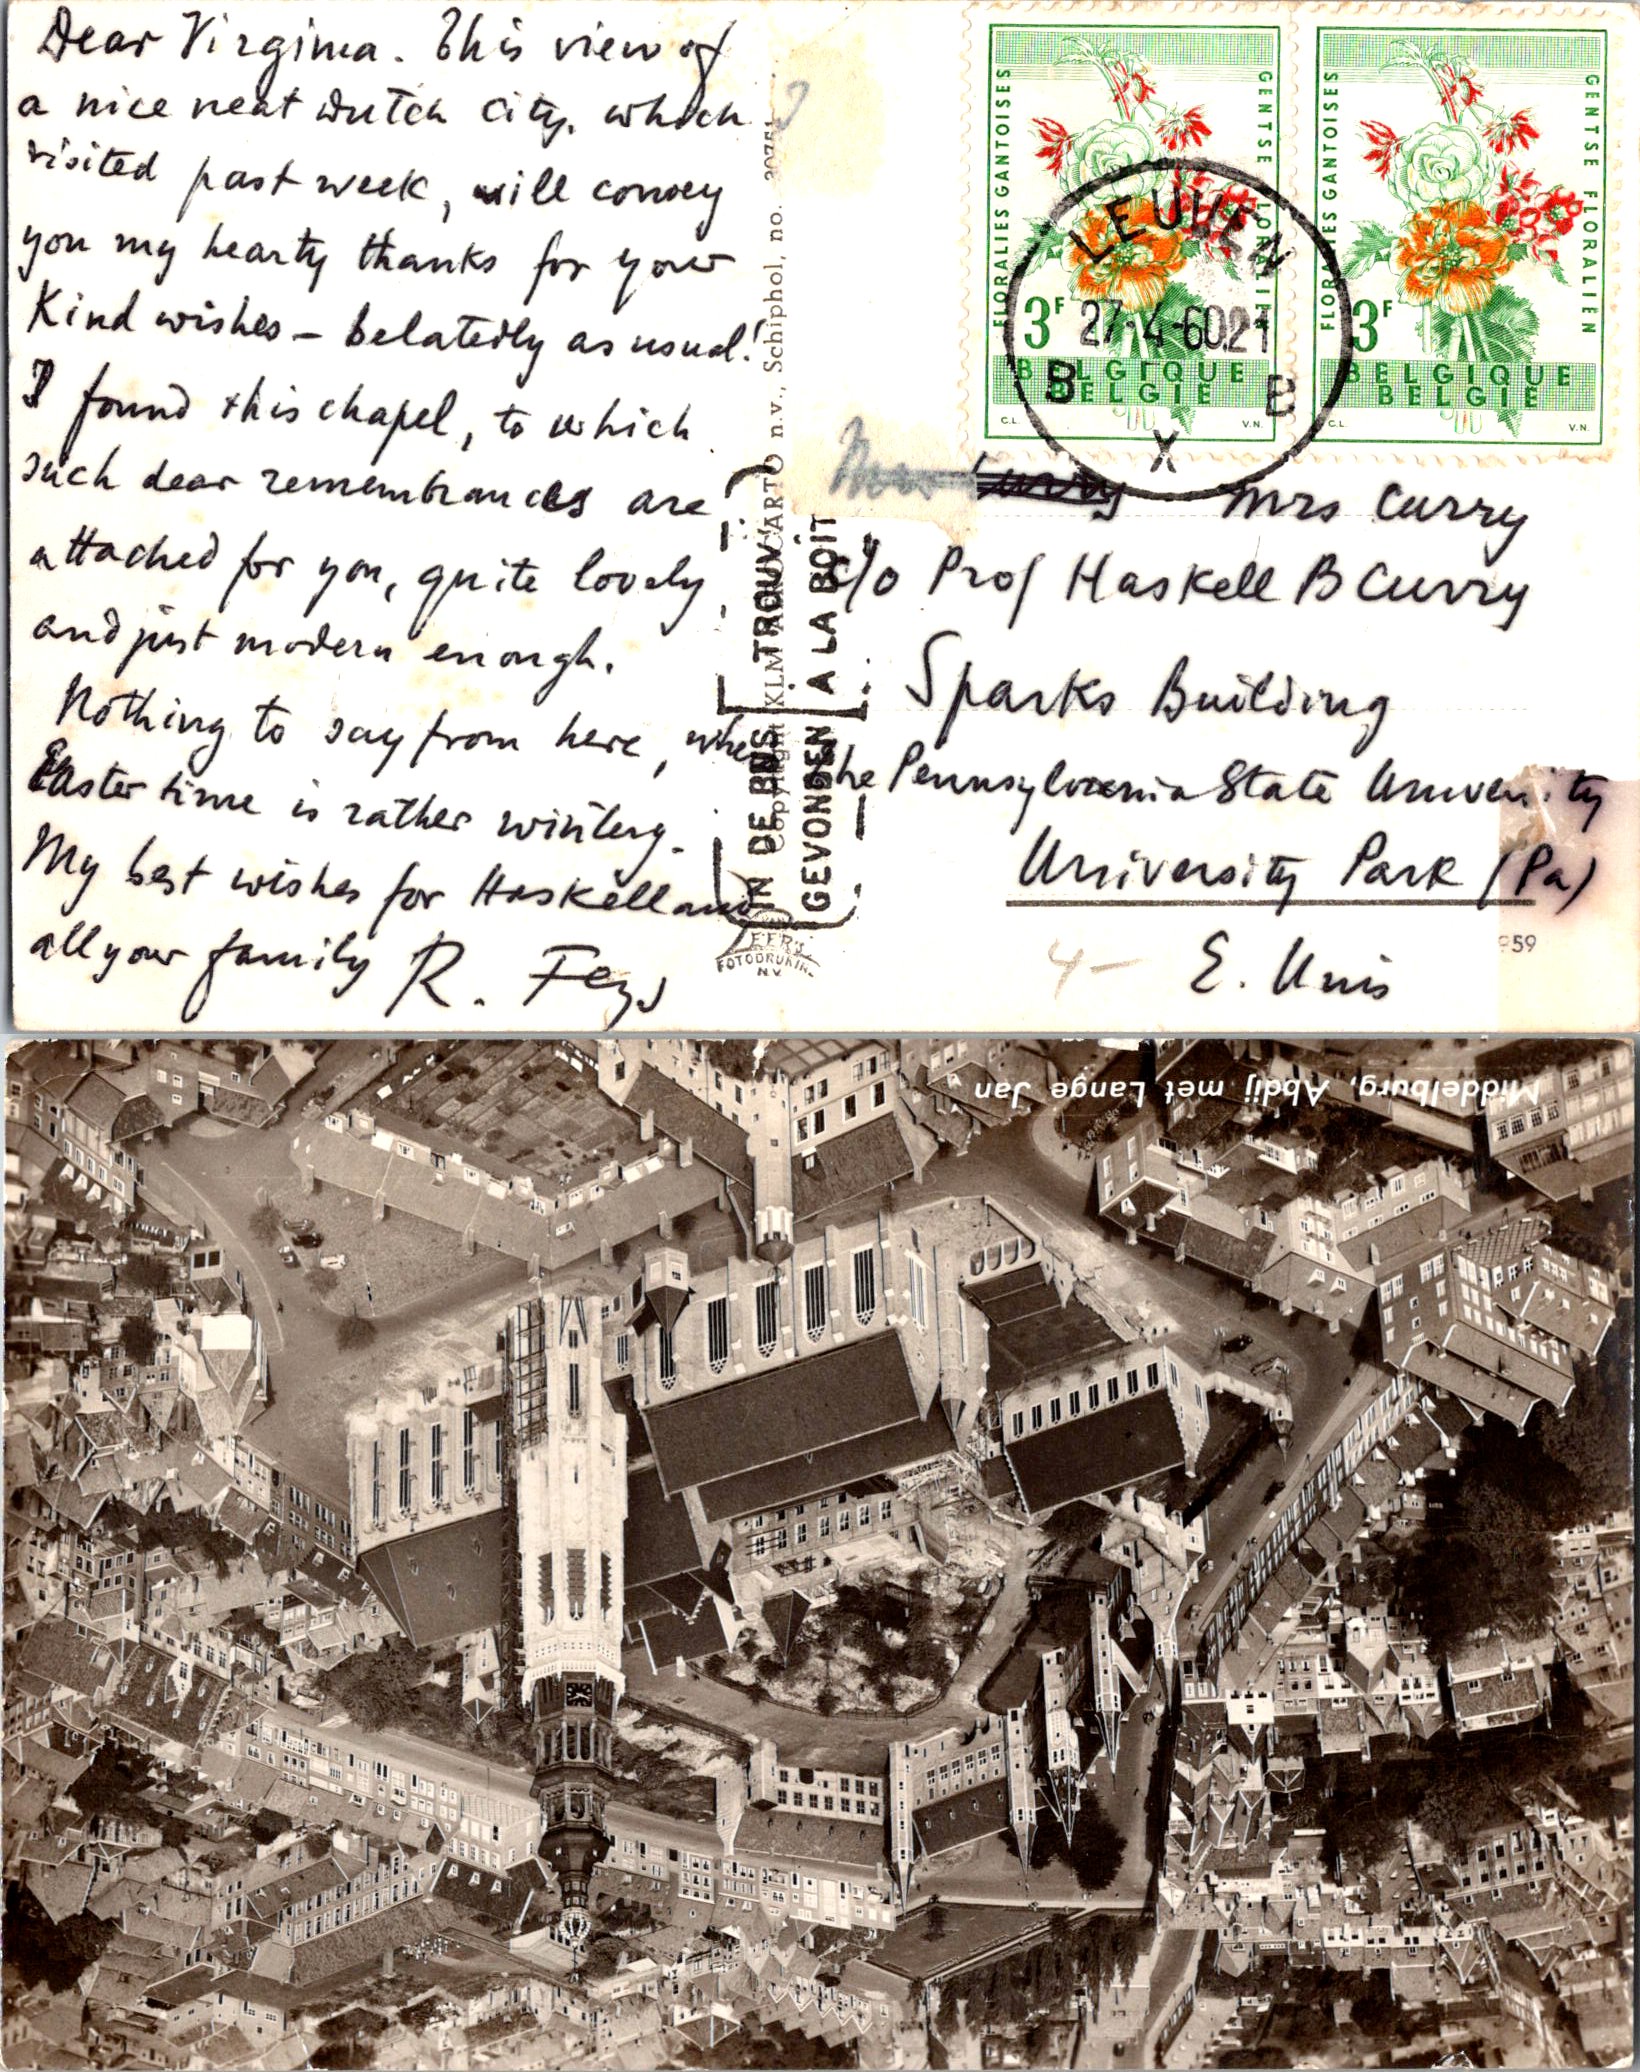 Dear Virginia. This view of
a nice neat Dutch city, which
visited past week, will convey
you my hearty thanks for your
Kind wishes – belatedly as usual!
I found this chapel, to which
such dear remembrances are
attached for you, quite lovely
and just modern enough.
Nothing to say from here, where
Easter time is rather wintery.
My best wishes for Haskell and
all your family R. Feys
Copyright KLM AEROCARTO n.v., Schiphol, no.
IN DE BUS TROUVÉ
GEVONDEN A LA BOÎTE
EFR'S
FOTODRUKIN.
N.V.
FLORALIES GANTOISES
GENTSE FLORALIEN
3F
BELGIQUE
BELGIË
C.L.
V.N.
FLORALIES GANTOISES
GENTSE FLORALIEN
3F
BELGIQUE
BELGIË
C.L.
V.N.
LEUVEN
27-4-60.21
B B
X
Curry Mrs Curry
c/o Prof Haskell B Curry
Sparks Building
The Pennsylvania State University
University Park (Pa)
4 –
E. Unis
959
Middelburg, Abdij met Lange Jan